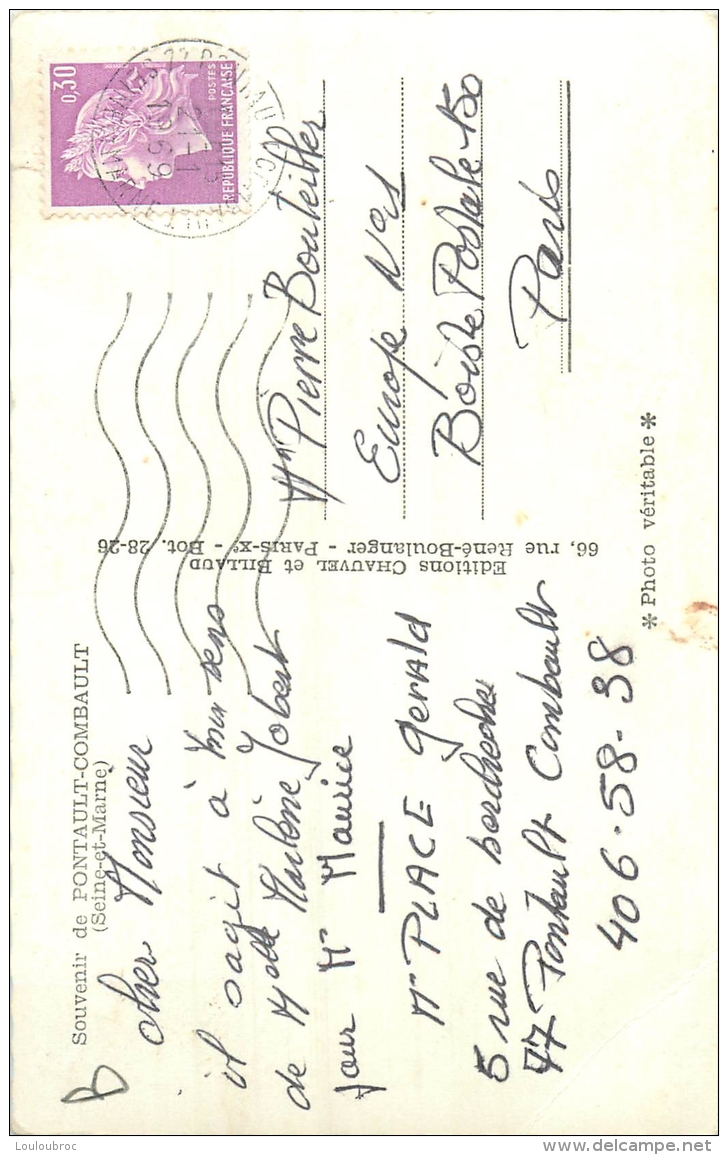 Souvenir de PONTAULT-COMBAULT
(Seine-et-Marne)
B
cher Monsieur
il sagit à mon sens
de Melle Marlène Jobert
pour Mr Maurice
Mr PLACE Gérald
5 rue de
77 Pontault Combault
406.58-38
Editions CHAUVEL et BILLAUD
66, rue René-Boulanger - PARIS-Xe - Bot. 28-26
0,30
POSTES
REPUBLIQUE FRANÇAISE
21-1
1969
Mr Pierre Bouteiller
Europe N°1
Boiste Postale 150
Paris
* Photo véritable *
Louloubroc
delcampe.net